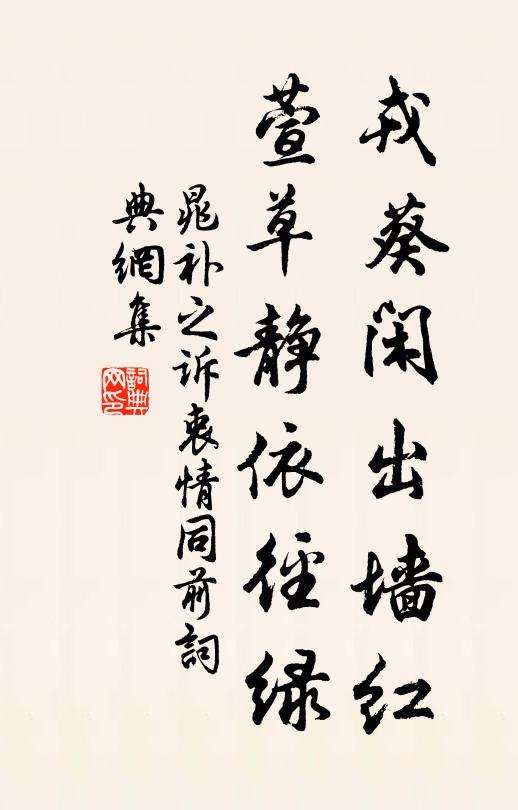 戎葵闲出墙红
萱草静依径绿
晁补之诉衷情同前詞
典網集
詞典網印